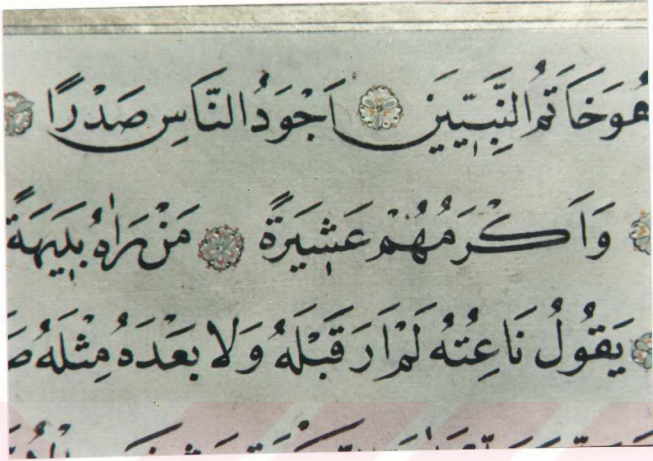 هُوَ خَاتَمُ النَّبِيّٖينَ اَجْوَدُ النَّاسِ صَدْرًا
وَاَكْرَمُهُمْ عَشٖيرَةً مَنْ رَاٰهُ بَدٖيهَةً
يَقُولُ نَاعِتُهُ لَمْ اَرَ قَبْلَهُ وَلَا بَعْدَهُ مِثْلَهُ